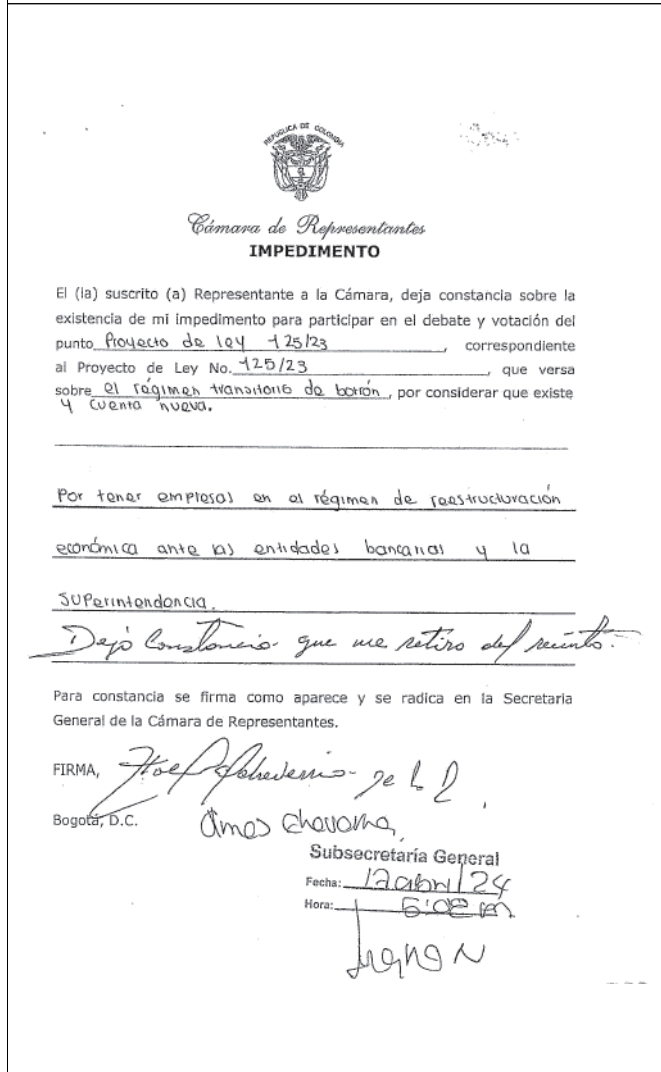 REPUBLICA DE COLOMBIA
Cámara de Representantes
IMPEDIMENTO
El (la) suscrito (a) Representante a la Cámara, deja constancia sobre la
existencia de mi impedimento para participar en el debate y votación del
punto Proyecto de ley 125/23, correspondiente
al Proyecto de Ley No. 125/23, que versa
sobre el régimen transitorio de borrón, por considerar que existe
y cuenta nueva.
Por tener empresas en el régimen de reestructuración
económica ante las entidades bancarias y la
Superintendencia.
Dejo Constancia que me retiro del recinto.
Para constancia se firma como aparece y se radica en la Secretaria
General de la Cámara de Representantes.
FIRMA,
Bogotá, D.C.
Subsecretaría General
Fecha: 12 abril 24
Hora: 5:08 pm